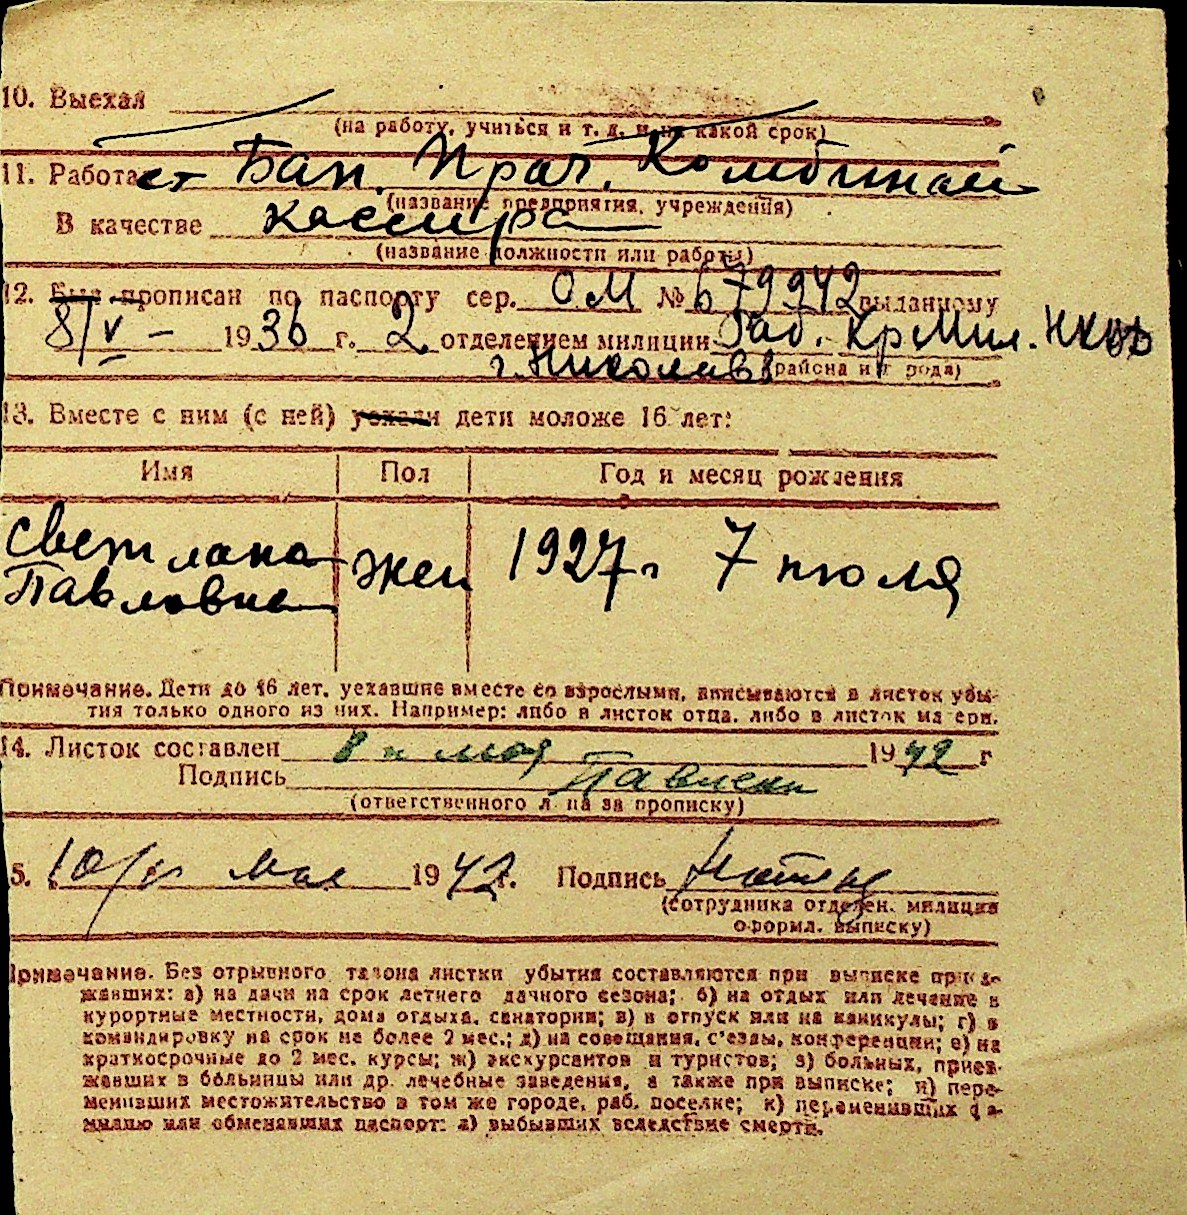 10. Выехал
(на работу, учиться и т. д. и на какой срок)
11. Работает Бан. Прач. Комбинат
(название предприятия, учреждения)
В качестве кассира
(название должности или работы)
12. Был прописан по паспорту сер. ОМ № 679942 выданному
8/V – 1936 г. 2 отделением милиции Раб. Кр Мил. НКВД
г. Николаев (района и города)
13. Вместе с ним (с ней) уехали дети моложе 16 лет:
Имя Пол Год и месяц рождения
Светлана жен 1927 г 7 июля
Павловна
Примечание. Дети до 16 лет, уехавшие вместе со взрослыми, вписываются в листок убы-
тия только одного из них. Например: либо в листок отца, либо в листок матери.
14. Листок составлен 8 мая 1942 г
Подпись
(ответственного лица за прописку)
15. 10/V мая 1942 г. Подпись
(сотрудника отделен. милиции
оформл. выписку)
Примечание. Без отрывного талона листки убытия составляются при выписке приез-
жавших: а) на дачи на срок летнего дачного сезона; б) на отдых или лечение в
курортные местности, дома отдыха, санатории; в) в отпуск или на каникулы; г) в
командировку на срок не более 2 мес.; д) на совещания, с'езды, конференции; е) на
краткосрочные до 2 мес. курсы; ж) экскурсантов и туристов; з) больных, приез-
жавших в больницы или др. лечебные заведения, а также при выписке; и) пере-
менивших местожительство в том же городе, раб. поселке; к) переменивших фа-
милию или обменявших паспорт; л) выбывших вследствие смерти.